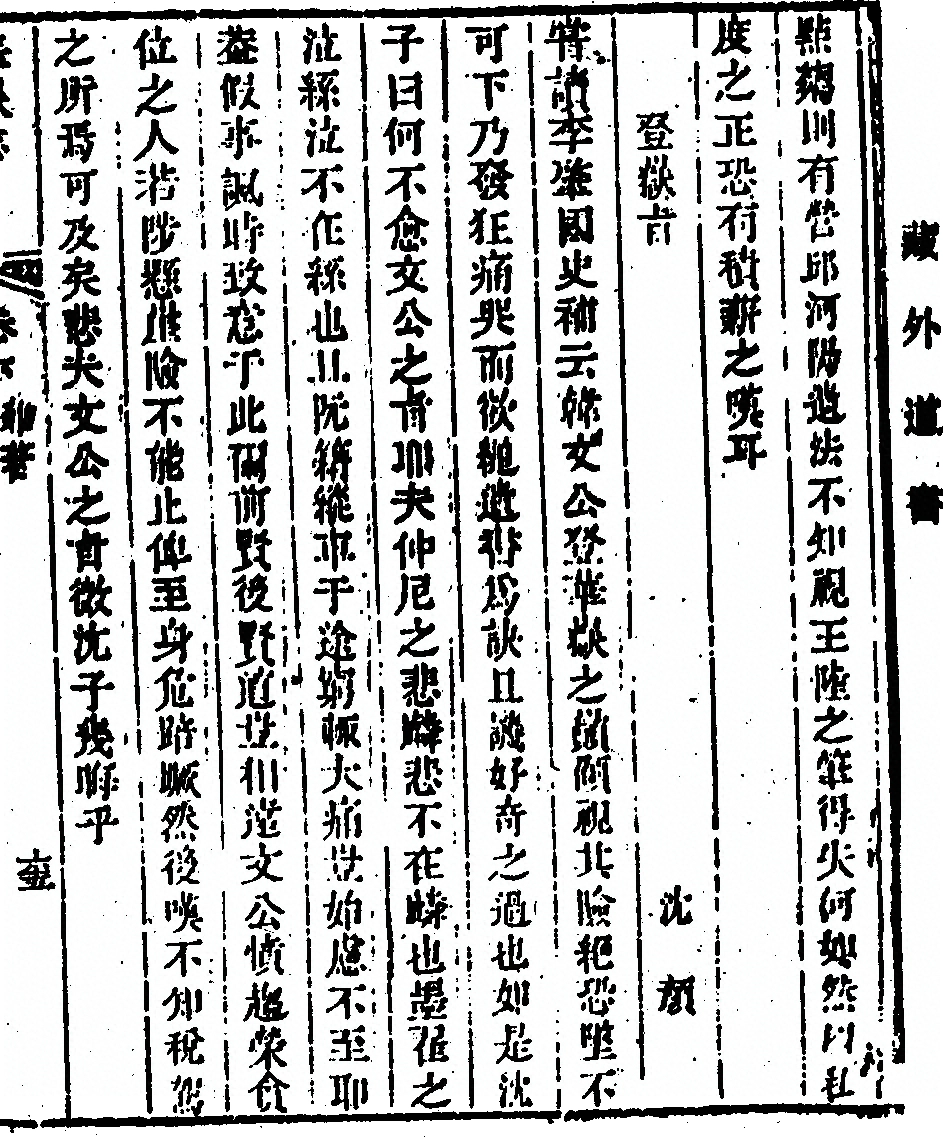 藏外道書
點翱則有營邱河陽遺法不知視王陸之筆得失何如然以私
度之正恐有積薪之嘆耳
登嶽言 沈顏
嘗讀李肇國史補云韓文公登華嶽之巔顧視其險絕恐墜不
可下乃發狂痛哭而欲縋遺書為訣且譏好奇之過也如是沈
子曰何不愈文公之言耶夫仲尼之悲麟悲不在麟也墨翟之
泣絲泣不在絲也且阮籍縱車于途窮輒大痛豈始慮不至耶
蓋假事諷時致意于此爾前賢後賢道豈相遠文公憤趨榮貪
位之人若陟懸崖險不能止俾至身危踣蹶然後嘆不知稅駕
之所焉可及矣悲夫文公之言微沈子幾晦乎
卷下 雜著